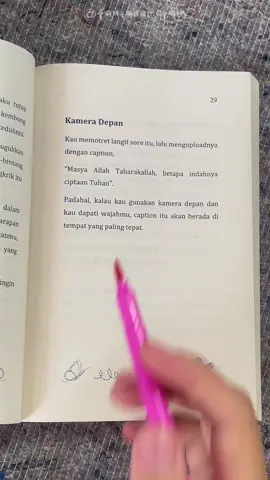 aku tutup
kembang
eduhmu.
uguhkan
-bintang
gkrik itu
dalam
arapan
anmu,
yang
ingin
29
Kamera Depan
Kau memotret langit sore itu, lalu menguploadnya
dengan caption,
"Masya Allah Tabarakallah, betapa indahnya
ciptaan Tuhan".
Padahal, kalau kau gunakan kamera depan dan
kau dapati wajahmu, caption itu akan berada di
tempat yang paling tepat.